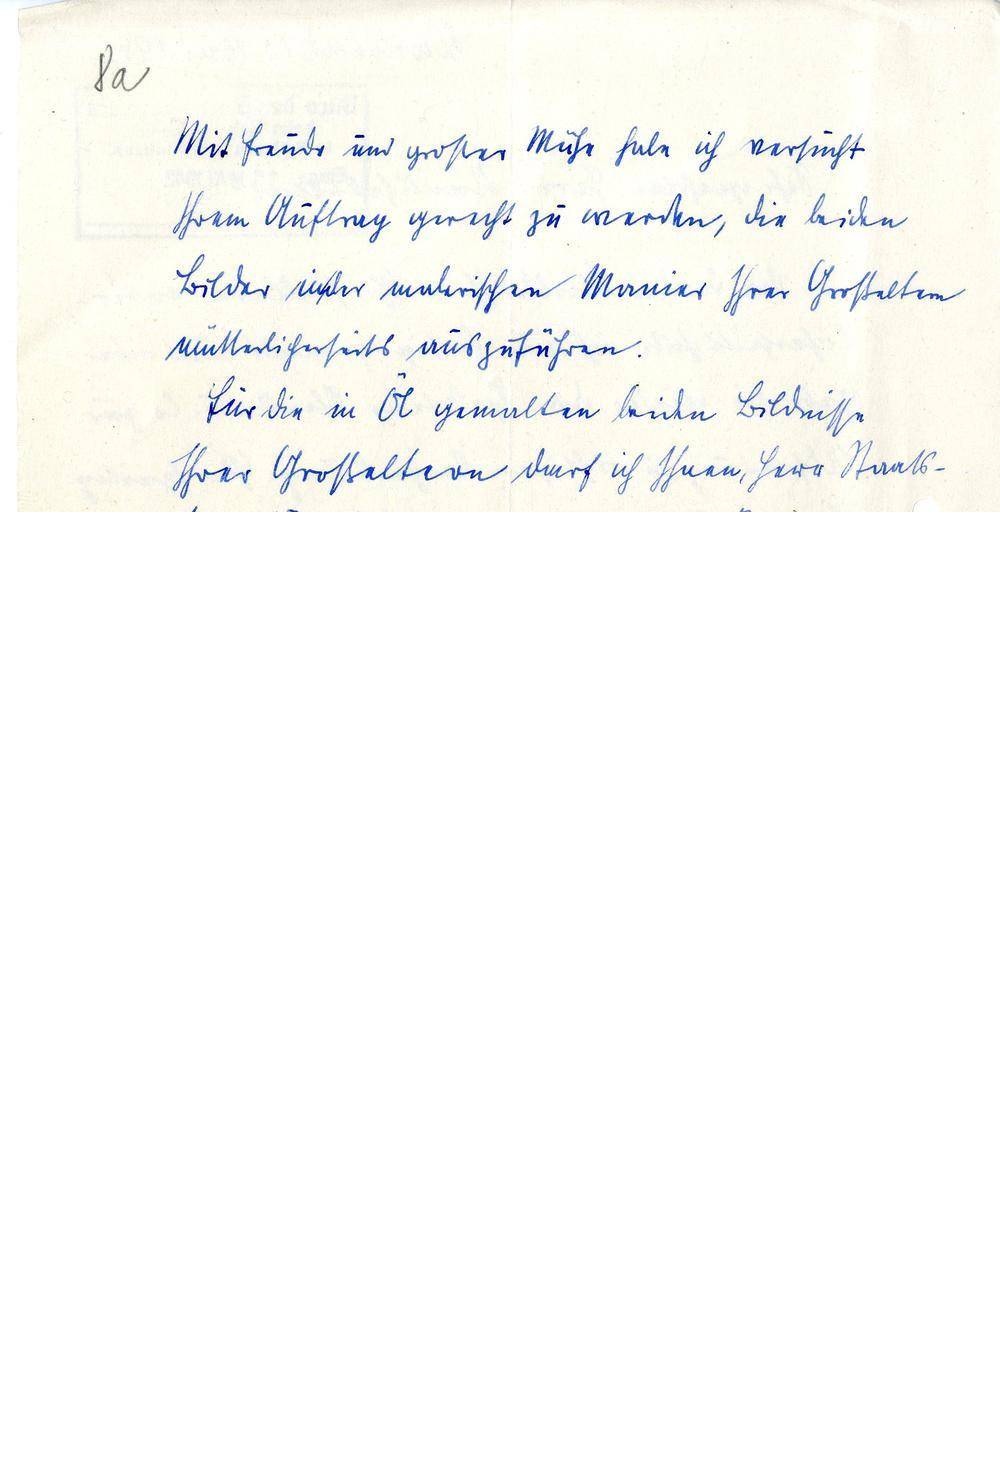 8a
Mit Freude und großer Mühe habe ich versucht
Ihrem Auftrag gerecht zu werden, die beiden
Bilder in der malerischen Manier Ihrer Großeltern
mütterlicherseits auszuführen.
Für die in Öl gemalten beiden Bildnisse
Ihrer Großeltern darf ich Ihnen, Herr Staats-